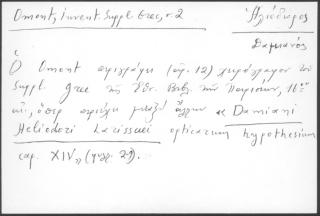 Omont, Invent. Suppl. Grec, σ. 2
Ἡλιόδωρος
Δαμιανός
Ὁ Omont περιγράφει (ἀρ. 12) χειρόγραφον τοῦ
Suppl. grec τῆς Ἐθν. Βιβλ. τῶν Παρισίων, 16ου
αἰ., ὅπερ περιέχει μεταξὺ ἄλλων Damiani
Heliodori Larissaei opticarum hypothesium
cap. XIV (φύλλ. 21).